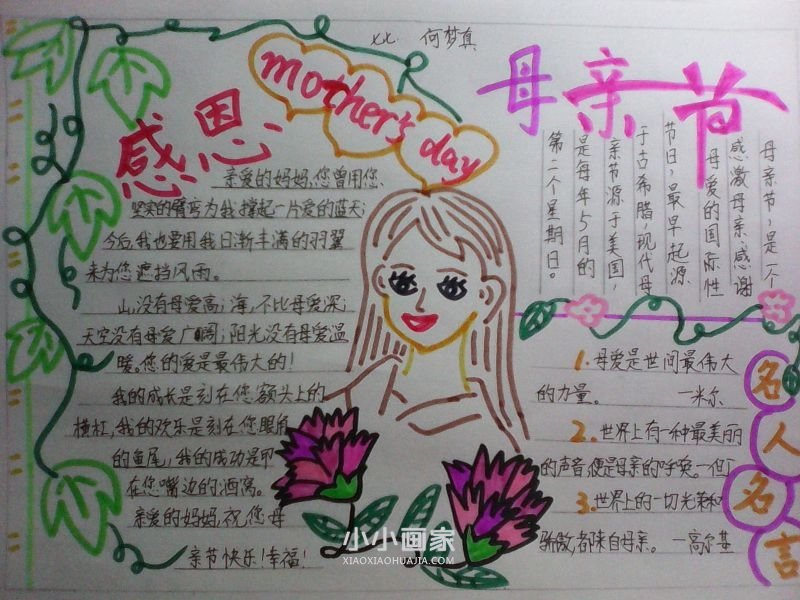 七七 何梦真
mother's day
感恩
亲爱的妈妈,您曾用您
坚实的臂弯为我撑起一片爱的蓝天;
今后,我也要用我日渐丰满的羽翼
来为您遮挡风雨。
山,没有母爱高;海,不比母爱深;
天空没有母爱广阔,阳光没有母爱温
暖。您的爱是最伟大的!
我的成长是刻在您额头上的
横杠,我的欢乐是刻在您眼角
的鱼尾,我的成功是印
在您嘴边的酒窝。
亲爱的妈妈,祝您母
亲节快乐!幸福!
母亲节
母亲节,是一个
感激母亲,感谢
母爱的国际性
节日,最早起源
于古希腊,现代母
亲节源于美国,
是每年5月的
第二个星期日。
名人名言
1.母爱是世间最伟大
的力量。 —米尔
2.世界上有一种最美丽
的声音,便是母亲的呼唤。—但丁
3.世界上的一切光荣和
骄傲,都来自母亲。—高尔基
小小画家
XIAOXIAOHUAJIA.COM